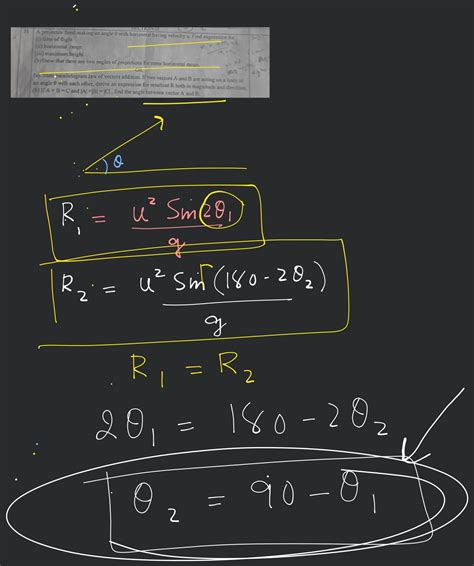 A projectile fired making an angle θ with horizontal having velocity u. Find expression for
(i) time of flight
(ii) horizontal range
(iii) maximum height
Show that there are two angles of projections for same horizontal range.
parallelogram law of vectors addition. If two vectors A and B are acting on a body at
an angle θ with each other, derive an expression for resultant R both in magnitude and direction.
(b) If A + B = C and |A|=|B|=|C|, find the angle between vector A and B.
θ
R₁ = u² Sin 2θ₁ / g
R₂ = u² Sin (180 - 2θ₂) / g
R₁ = R₂
2θ₁ = 180 - 2θ₂
θ₂ = 90 - θ₁